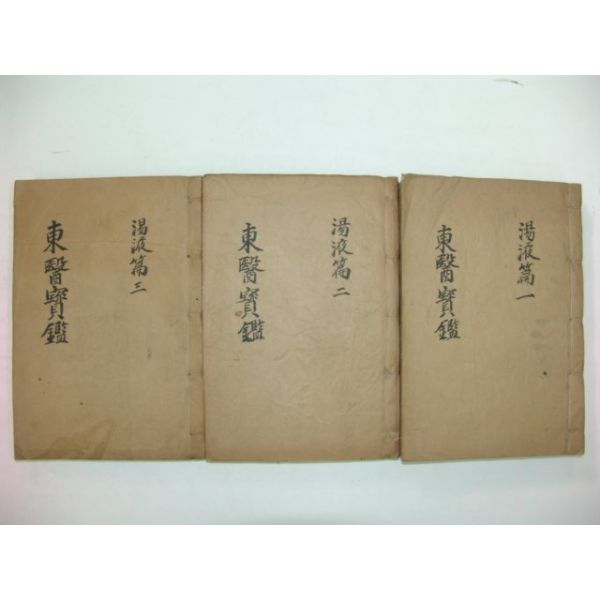 湯液篇一
東醫寶鑑
湯液篇二
東醫寶鑑
湯液篇三
東醫寶鑑